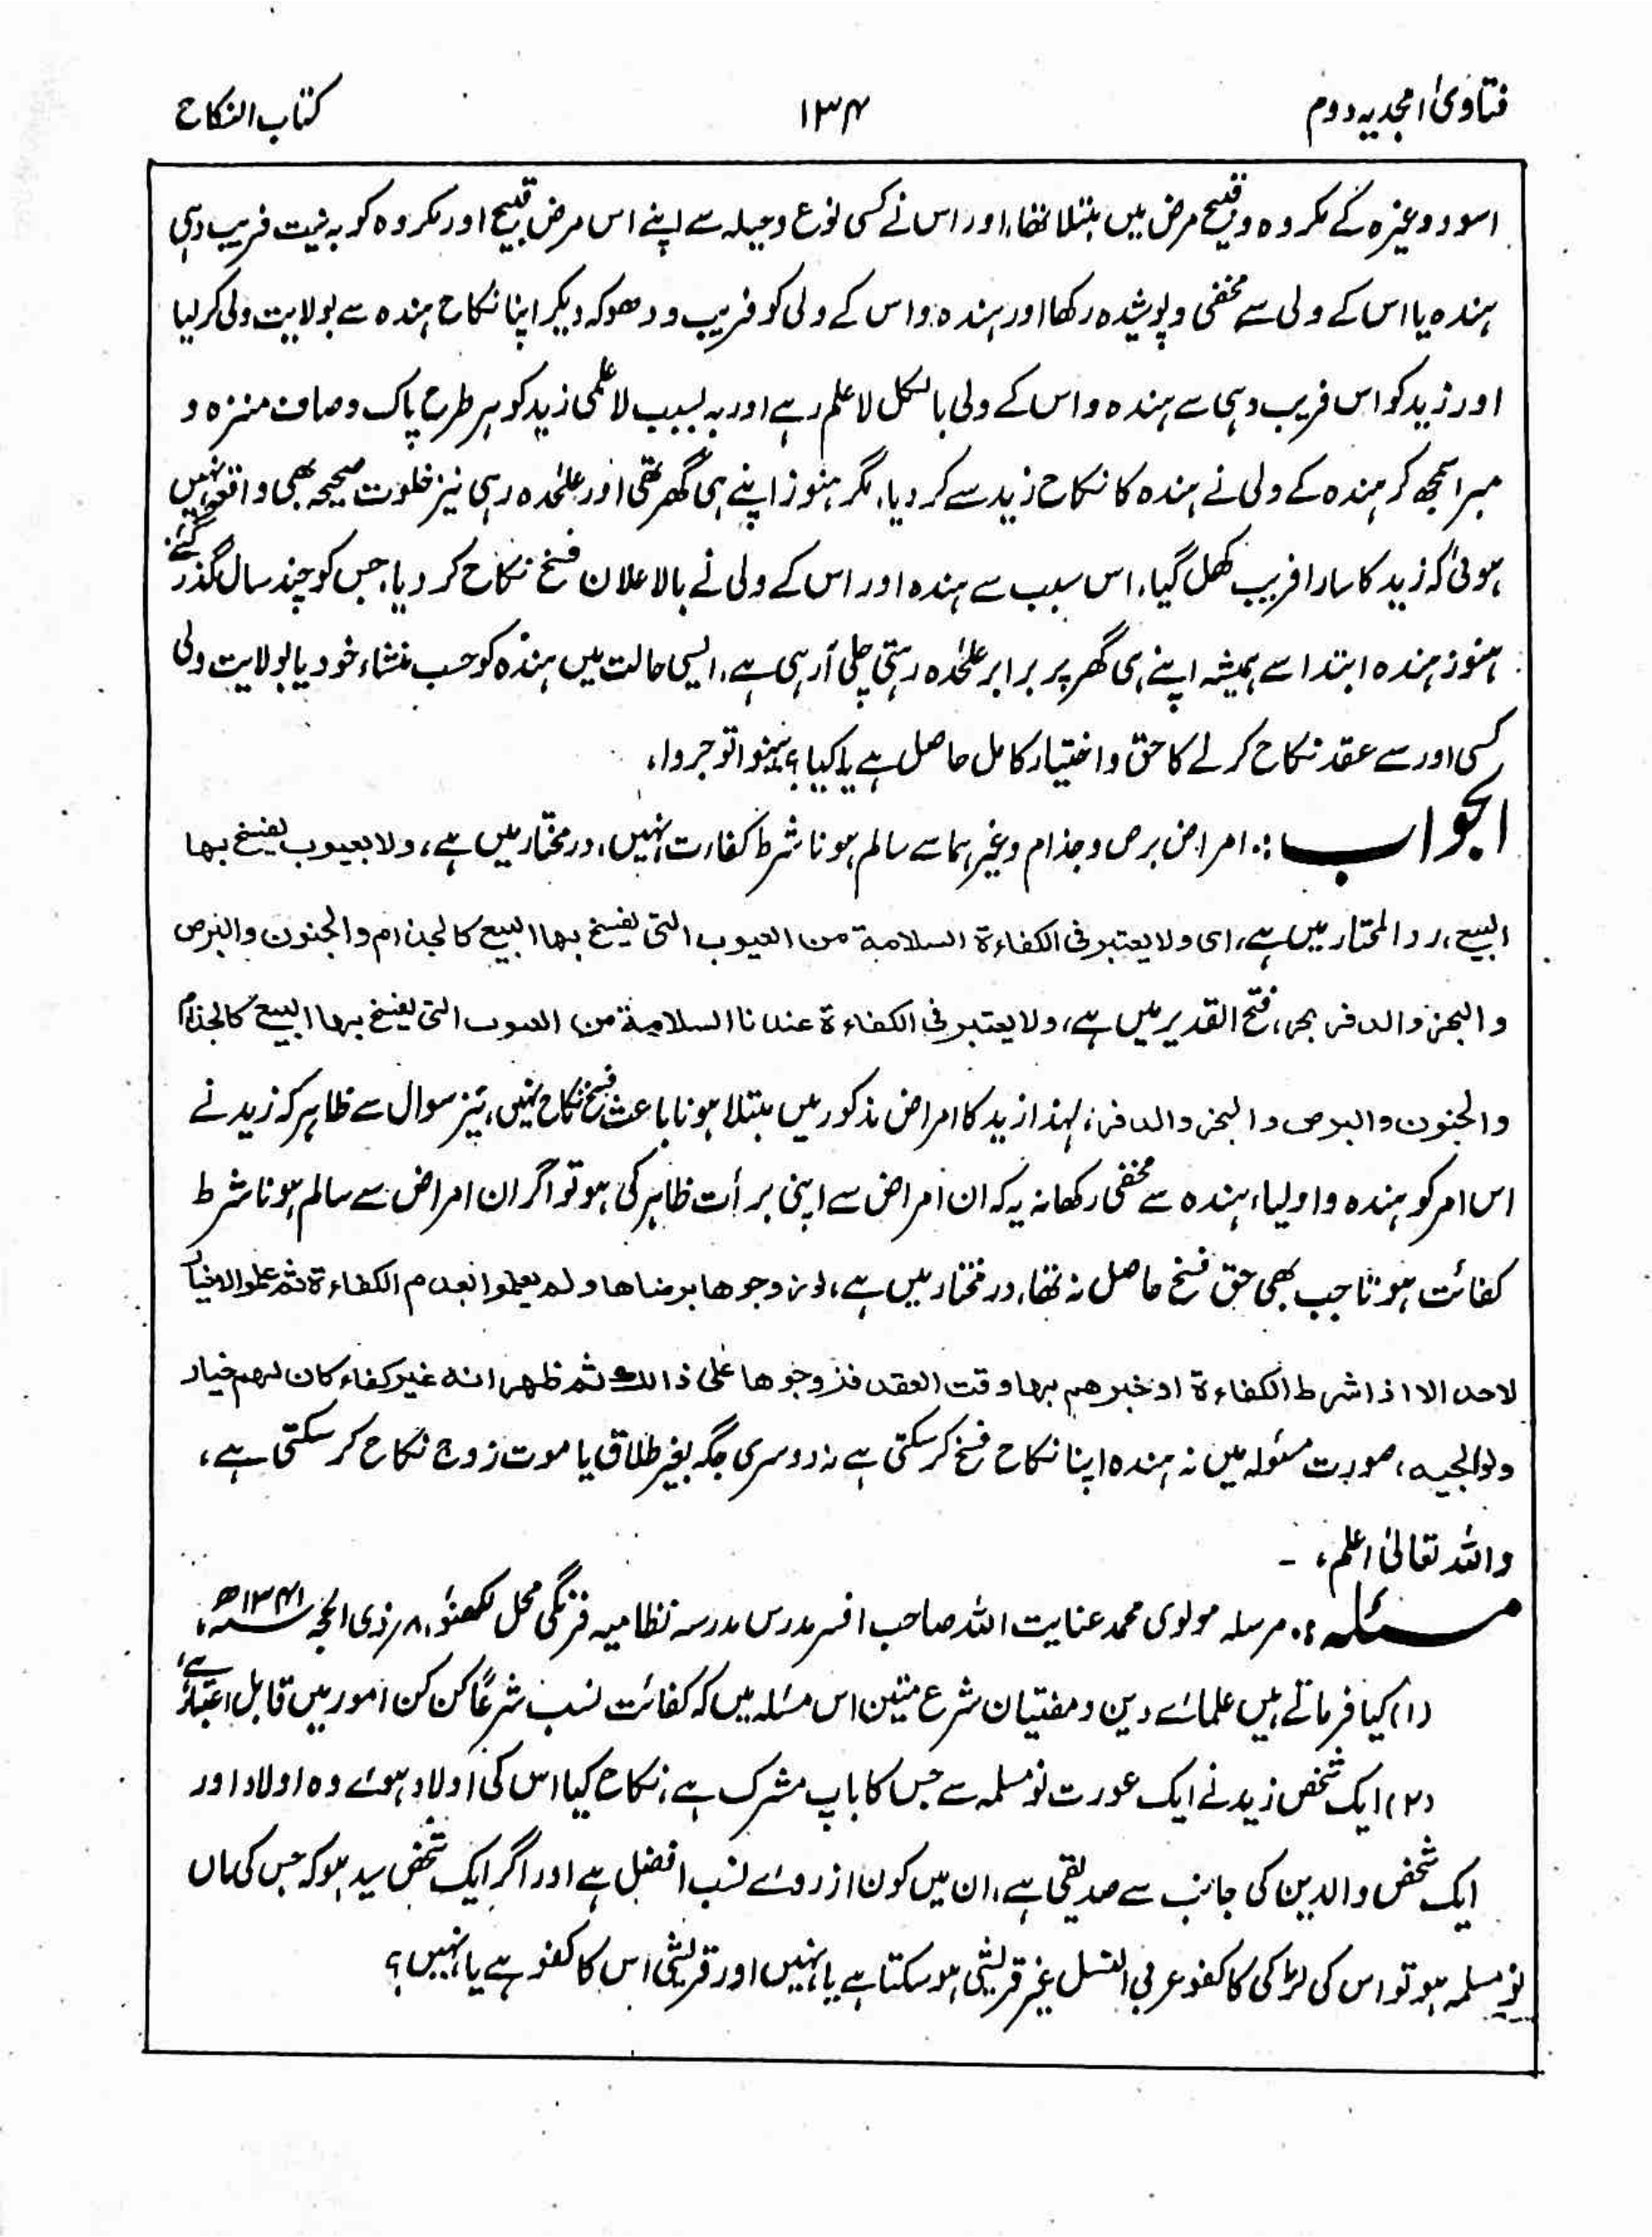 فتاویٰ امجدیہ دوم ۱۳۴ کتاب النکاح
اسود وغیرہ کے مکروہ وقبیح مرض میں مبتلا تھا، اور اس نے کسی نوع وحیلہ سے اپنے اس مرض قبیح اور مکروہ کو بہ نیت فریب دہی
ہندہ یا اس کے ولی سے مخفی و پوشیدہ رکھا اور ہندہ و اس کے ولی کو فریب و دھوکہ دیکر اپنا نکاح ہندہ سے بولایت ولی کرلیا
اور زید کو اس فریب دہی سے ہندہ و اس کے ولی بالکل لاعلم رہے اور بہ سبب لاعلمی زید کو ہر طرح پاک وصاف منزہ و
مبرا سمجھ کر ہندہ کے ولی نے ہندہ کا نکاح زید سے کر دیا، مگر ہنوز اپنے ہی گھر تھی اور علیٰحدہ رہی نیز خلوت صحیحہ بھی واقع نہیں
ہوئی کہ زید کا سارا فریب کھل گیا، اس سبب سے ہندہ اور اس کے ولی نے بالاعلان فسخ نکاح کر دیا، جس کو چند سال گذر گئے،
ہنوز ہندہ ابتدا سے ہمیشہ اپنے ہی گھر پر برابر علیٰحدہ رہتی چلی آرہی ہے، ایسی حالت میں ہندہ کو حسب منشاء خود یا بولایت ولی
کسی اور سے عقد نکاح کرلے کا حق و اختیار کامل حاصل ہے یا کیا؟ بینوا توجروا،
الجواب:۔ امراض برص و جذام وغیرہما سے سالم ہونا شرط کفاءت نہیں، در مختار میں ہے، ولا بعیوب یفسخ بھا
البیع، رد المحتار میں ہے، ای ولا یعتبر فی الکفاءۃ السلامۃ من العیوب التی یفسخ بھا البیع کالجذام والجنون والبرص
والبخر والدفر، بحر، فتح القدیر میں ہے، ولا یعتبر فی الکفاءۃ عندنا السلامۃ من العیوب التی یفسخ بھا البیع کالجذام
والجنون والبرص والبخر والدفر، لہٰذا زید کا امراض مذکور میں مبتلا ہونا باعث فسخ نکاح نہیں، نیز سوال سے ظاہر کہ زید نے
اس امر کو ہندہ و اولیاء ہندہ سے مخفی رکھا نہ یہ کہ ان امراض سے اپنی برأت ظاہر کی ہو تو اگر ان امراض سے سالم ہونا شرط
کفائت ہوتا جب بھی حق فسخ حاصل نہ تھا، در مختار میں ہے، لو زوجوھا برضاھا ولم یعلموا بعدم الکفاءۃ ثم علموا لا خیار
لاحد الا اذا شرط الکفاءۃ او خبرھم بھا وقت العقد فزوجوھا علی ذالک ثم ظھر انہ غیر کفاء کان لھم خیار
ولوالجیہ، صورت مسئولہ میں نہ ہندہ اپنا نکاح فسخ کر سکتی ہے نہ دوسری جگہ بغیر طلاق یا موت زوج نکاح کر سکتی ہے،
واللہ تعالیٰ اعلم، ۔
مسئلہ:۔ مرسلہ مولوی محمد عنایت اللہ صاحب افسر مدرس مدرسہ نظامیہ فرنگی محل لکھنؤ، ۸؍ ذی الحجہ سنہ ۱۳۴۱ھ،
(۱) کیا فرماتے ہیں علمائے دین و مفتیان شرع متین اس مسئلہ میں کہ کفائت نسب شرعاً کن کن امور میں قابل اعتبار ہے،
(۲) ایک شخص زید نے ایک عورت نومسلمہ سے جس کا باپ مشرک ہے، نکاح کیا اس کی اولاد ہوئے وہ اولاد اور
ایک شخص والدین کی جانب سے صدیقی ہے، ان میں کون ازروئے نسب افضل ہے اور اگر ایک شخص سید ہو کہ جس کی ماں
نومسلمہ ہو تو اس کی لڑکی کا کفو عربی النسل غیر قریشی ہوسکتا ہے یا نہیں اور قریشی اس کا کفو ہے یا نہیں؟